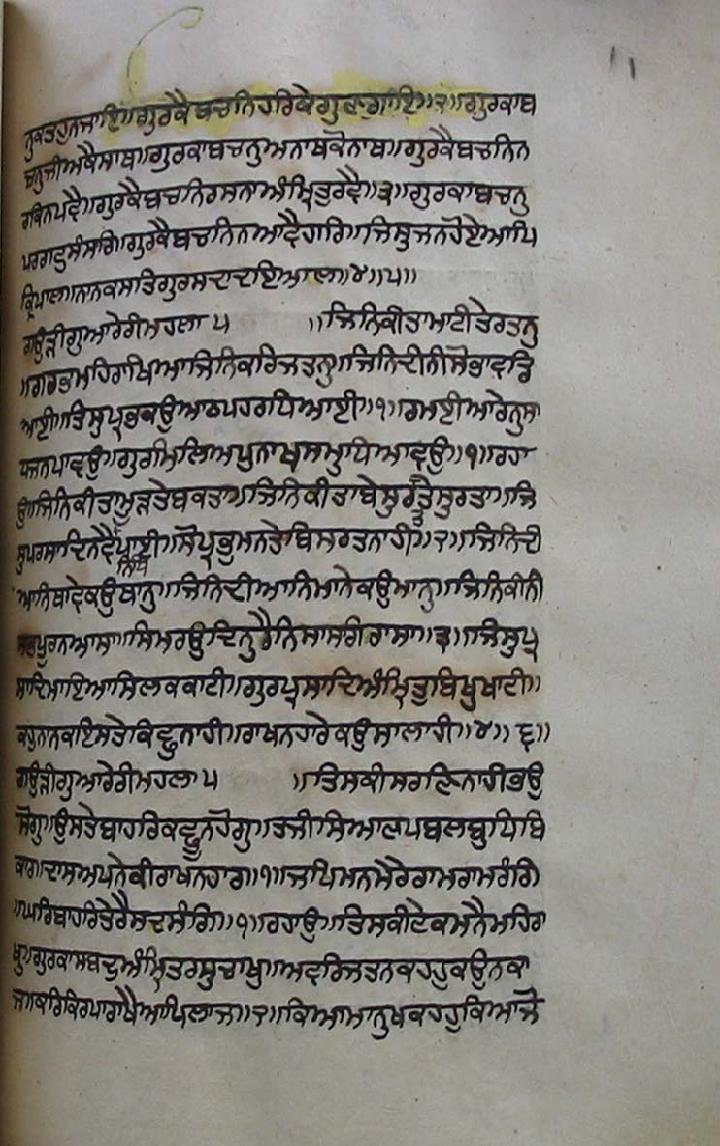 ਨੁਕਤਹੁਨਜਾਇ॥ਗੁਰਕੈਬਚਨਿਹਰਿਕੇਗੁਣਗਾਇ॥੨॥ਗੁਰਕਾਬ
ਚਨੁਜੀਅਕੈਸਾਥ॥ਗੁਰਕਾਬਚਨੁਅਨਾਥਕੋਨਾਥ॥ਗੁਰਕੈਬਚਨਿਨ
ਰਕਿਨਪਵੈ॥ਗੁਰਕੈਬਚਨਿਰਸਨਾਅੰਮ੍ਰਿਤੁਰਵੈ॥੩॥ਗੁਰਕਾਬਚਨੁ
ਪਰਗਟੁਸੰਸਾਰਿ॥ਗੁਰਕੈਬਚਨਿਨਆਵੈਹਾਰਿ॥ਜਿਸੁਜਨਹੋਏਆਪਿ
ਕ੍ਰਿਪਾਲ॥ਨਾਨਕਸਤਿਗੁਰਸਦਾਦਇਆਲ॥੪॥੫॥
ਗਉੜੀਗੁਆਰੇਰੀਮਹਲਾ ੫ ॥ਜਿਨਿਕੀਤਾਮਾਟੀਤੇਰਤਨੁ
॥ਗਰਭਮਹਿਰਾਖਿਆਜਿਨਿਕਰਿਜਤਨੁ॥ਜਿਨਿਦੀਨੀਸੋਭਾਵਡਿ
ਆਈ॥ਤਿਸੁਪ੍ਰਭਕਉਆਠਪਹਰਧਿਆਈ॥੧॥ਰਮਈਆਰੇਨੁਸਾ
ਧਜਨਪਾਵਉ॥ਗੁਰਮਿਲਿਅਪੁਨਾਖਸਮੁਧਿਆਵਉ॥੧॥ਰਹਾ
ਉ॥ਜਿਨਿਕੀਤਾਮੂੜਤੇਬਕਤਾ॥ਜਿਨਿਕੀਤਾਬੇਸੁਰਤਤੇਸੁਰਤਾ॥ਜਿ
ਸੁਪਰਸਾਦਿਨਵੈਪਾਈ॥ਸੋਪ੍ਰਭੁਮਨਤੇਬਿਸਰਤਨਾਹੀ॥੨॥ਜਿਨਿਦੀ
ਨਿਧਿ
ਆਨਿਥਾਵੇਕਉਥਾਨੁ॥ਜਿਨਿਦੀਆਨਿਮਾਨੇਕਉਮਾਨੁ॥ਜਿਨਿਕੀਨੀ
ਸਭਪੂਰਨਆਸਾ॥ਸਿਮਰਉਦਿਨੁਰੈਨਿਸਾਸਗਿਰਾਸਾ॥੩॥ਜਿਸੁਪ੍ਰ
ਸਾਦਿਮਾਇਆਸਿਲਕਕਾਟੀ॥ਗੁਰਪ੍ਰਸਾਦਿਅੰਮ੍ਰਿਤੁਬਿਖੁਖਾਟੀ॥
ਕਹੁਨਾਨਕਇਸਤੇਕਿਛੁਨਾਹੀ॥ਰਾਖਨਹਾਰੇਕਉਸਾਲਾਹੀ॥੪॥੬॥
ਗਉੜੀਗੁਆਰੇਰੀਮਹਲਾ ੫ ॥ਤਿਸਕੀਸਰਣਿਨਾਹੀਭਉ
ਸੋਗੁ॥ਉਸਤੇਬਾਹਰਿਕਛੂਨਹੋਗੁ॥ਤਜੀਸਿਆਣਪਬਲਬੁਧਿਬਿ
ਕਾਰ॥ਦਾਸਅਪਨੇਕੀਰਾਖਨਹਾਰ॥੧॥ਜਪਿਮਨਮੇਰੇਰਾਮਰਾਮਰੰਗਿ
॥ਘਰਿਬਾਹਰਿਤੇਰੈਸਦਸੰਗਿ॥੧॥ਰਹਾਉ॥ਤਿਸਕੀਟੇਕਮਨੈਮਹਿਰਾ
ਖੁ॥ਗੁਰਕਾਸਬਦੁਅੰਮ੍ਰਿਤਰਸੁਚਾਖੁ॥ਅਵਰਿਜਤਨਕਹਹੁਕਉਨਕਾ
ਜ॥ਕਰਿਕਿਰਪਾਰਾਖੈਆਪਿਲਾਜ॥੨॥ਕਿਆਮਾਨੁਖਕਹਹੁਕਿਆਜੋ